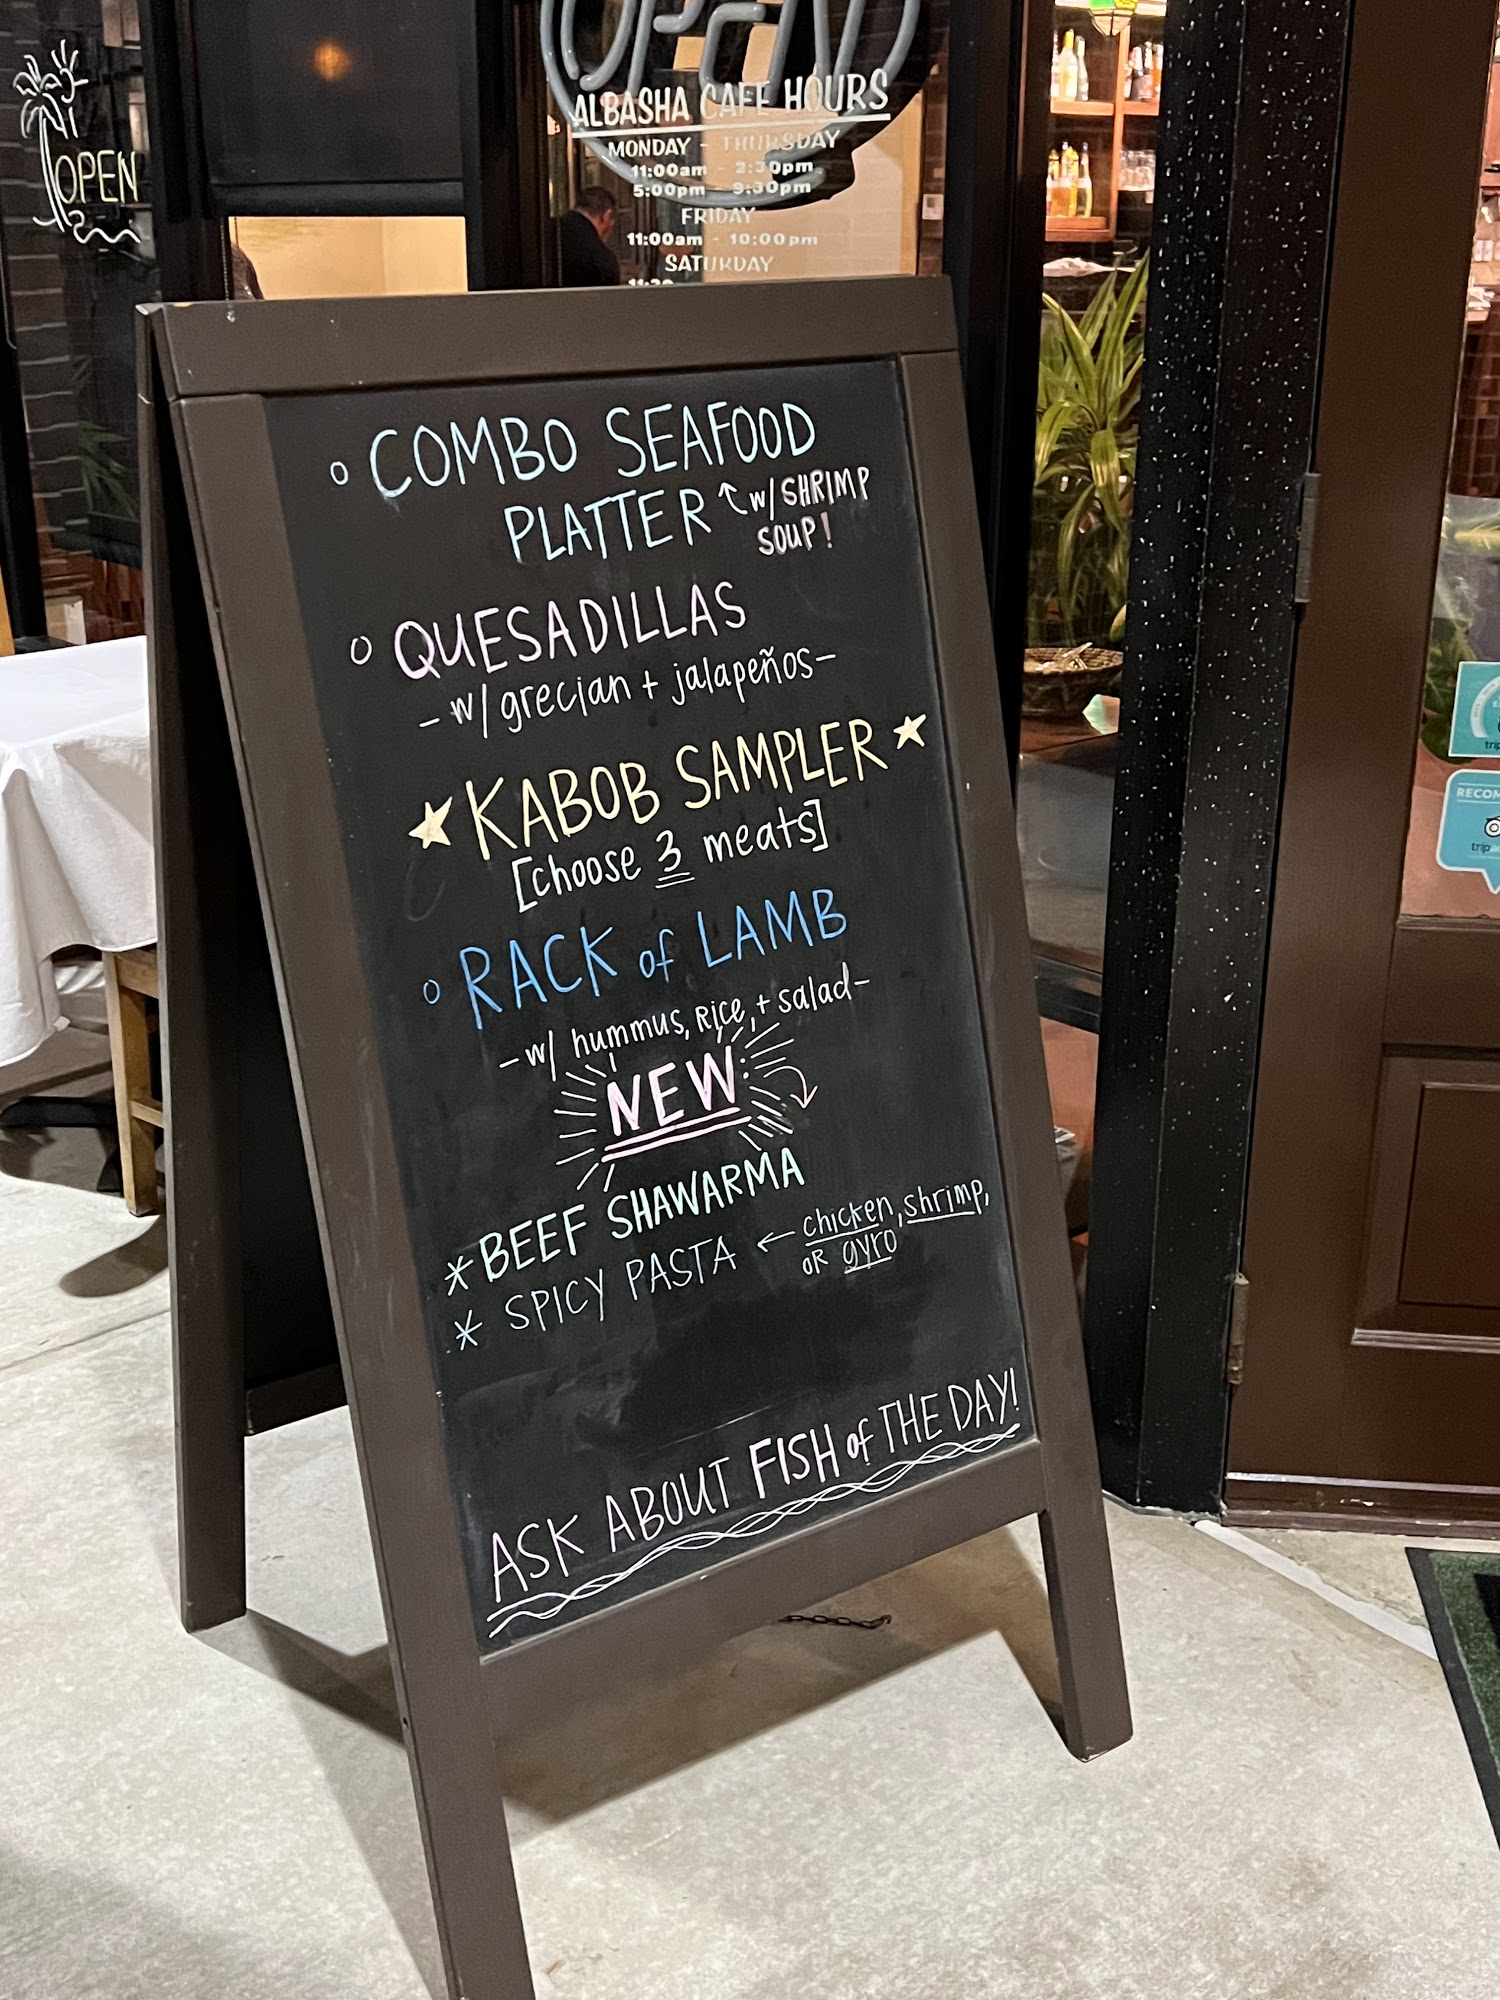 OPEN
OPEN
ALBASHA CAFE HOURS
MONDAY - THURSDAY
11:00am - 2:30pm
5:00pm - 9:30pm
FRIDAY
11:00am - 10:00pm
SATURDAY
° COMBO SEAFOOD
PLATTER w/ SHRIMP
SOUP!
° QUESADILLAS
- w/ grecian + jalapeños -
KABOB SAMPLER
[choose 3 meats]
° RACK of LAMB
- w/ hummus, RICE, + salad -
NEW:
* BEEF SHAWARMA
* SPICY PASTA ← chicken, shrimp,
OR gyro
ASK ABOUT FISH of THE DAY!